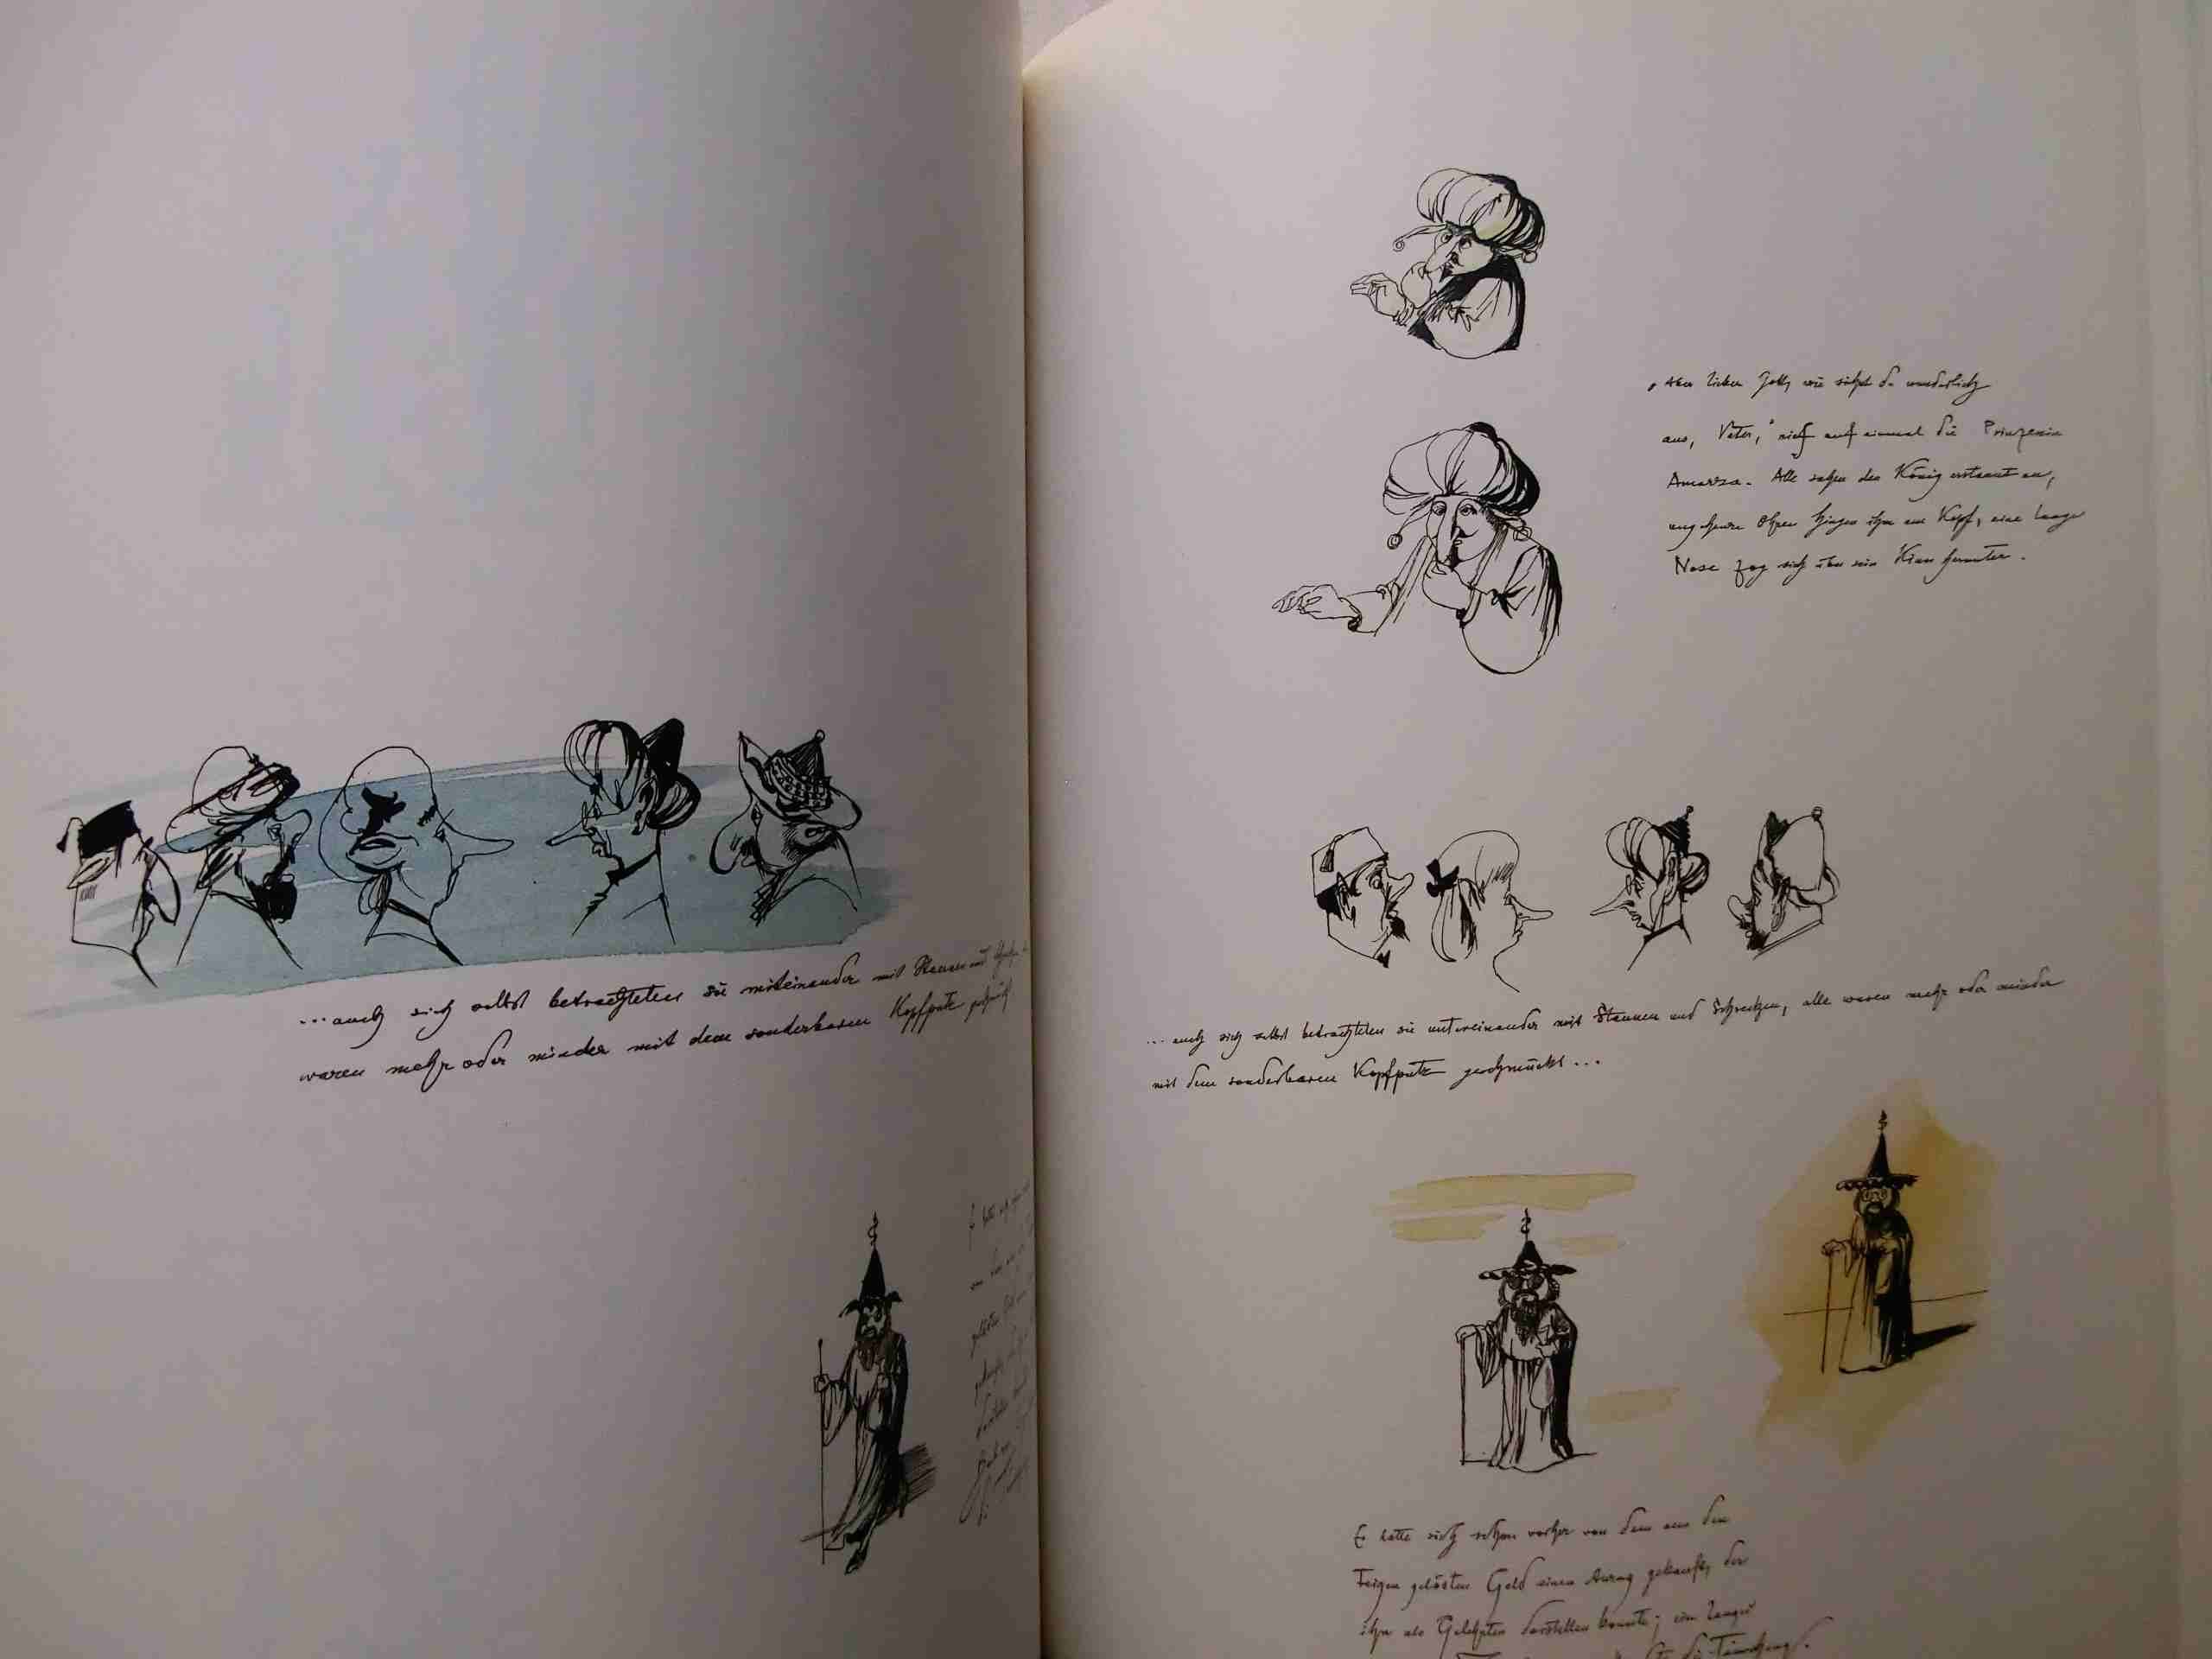 ...auch sich selbst betrachteten sie miteinander mit Staunen und
waren mehr oder minder mit dem sonderbaren Kopfputz geschmückt
„Aber lieber Gott, wie siehst du wunderlich
aus, Vater," rief auf einmal die Prinzessin
Amarza. Alle sahen den König erstaunt an,
ungeheure Ohren hingen ihm am Kopf, eine lange
Nase zog sich über sein Kinn herunter.
...auch sich selbst betrachteten sie untereinander mit Staunen und Schrecken, alle waren mehr oder minder
mit dem sonderbaren Kopfputz geschmückt...
Er hatte sich schon vorher von dem aus den
Feigen gelösten Geld einen Anzug gekauft, der
ihn als Gelehrten darstellen konnte; ein langer
die Täuschung.